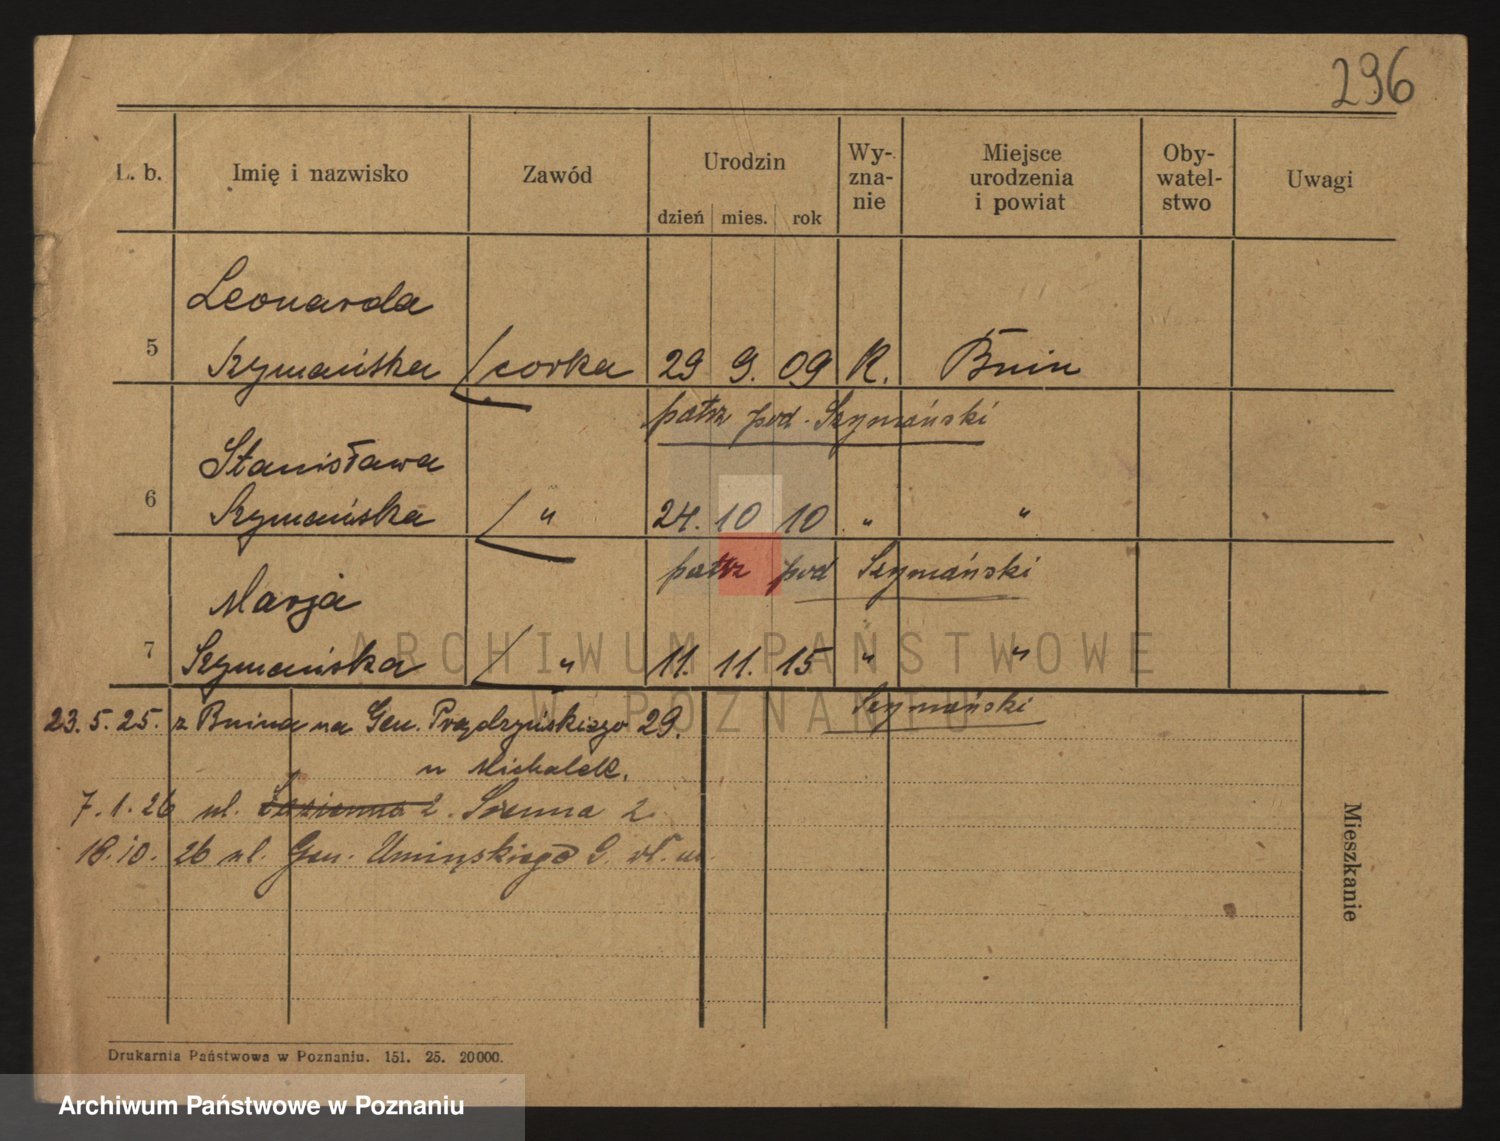 296
L. b. Imię i nazwisko Zawód Urodzin dzień mies. rok Wy-zna-nie Miejsce urodzenia i powiat Oby-watel-stwo Uwagi
Leonarda
5 Szymańska córka 29 9. 09 R. Bnin
patrz pod. Szymański
Stanisława
6 Szymańska " 24. 10 10 " "
patrz pod Szymański
Marja
7 Szymańska " 11. 11. 15 " "
Szymański
23.5.25. z Bnina na Gen. Prądzyńskiego 29.
u Michalek.
7.1.26 ul. Łazienna 2. Szewna 2
18.10.26 ul. Gen. Umińskiego
Mieszkanie
Drukarnia Państwowa w Poznaniu. 151. 25. 20000.
ARCHIWUM PAŃSTWOWE
W POZNANIU
Archiwum Państwowe w Poznaniu